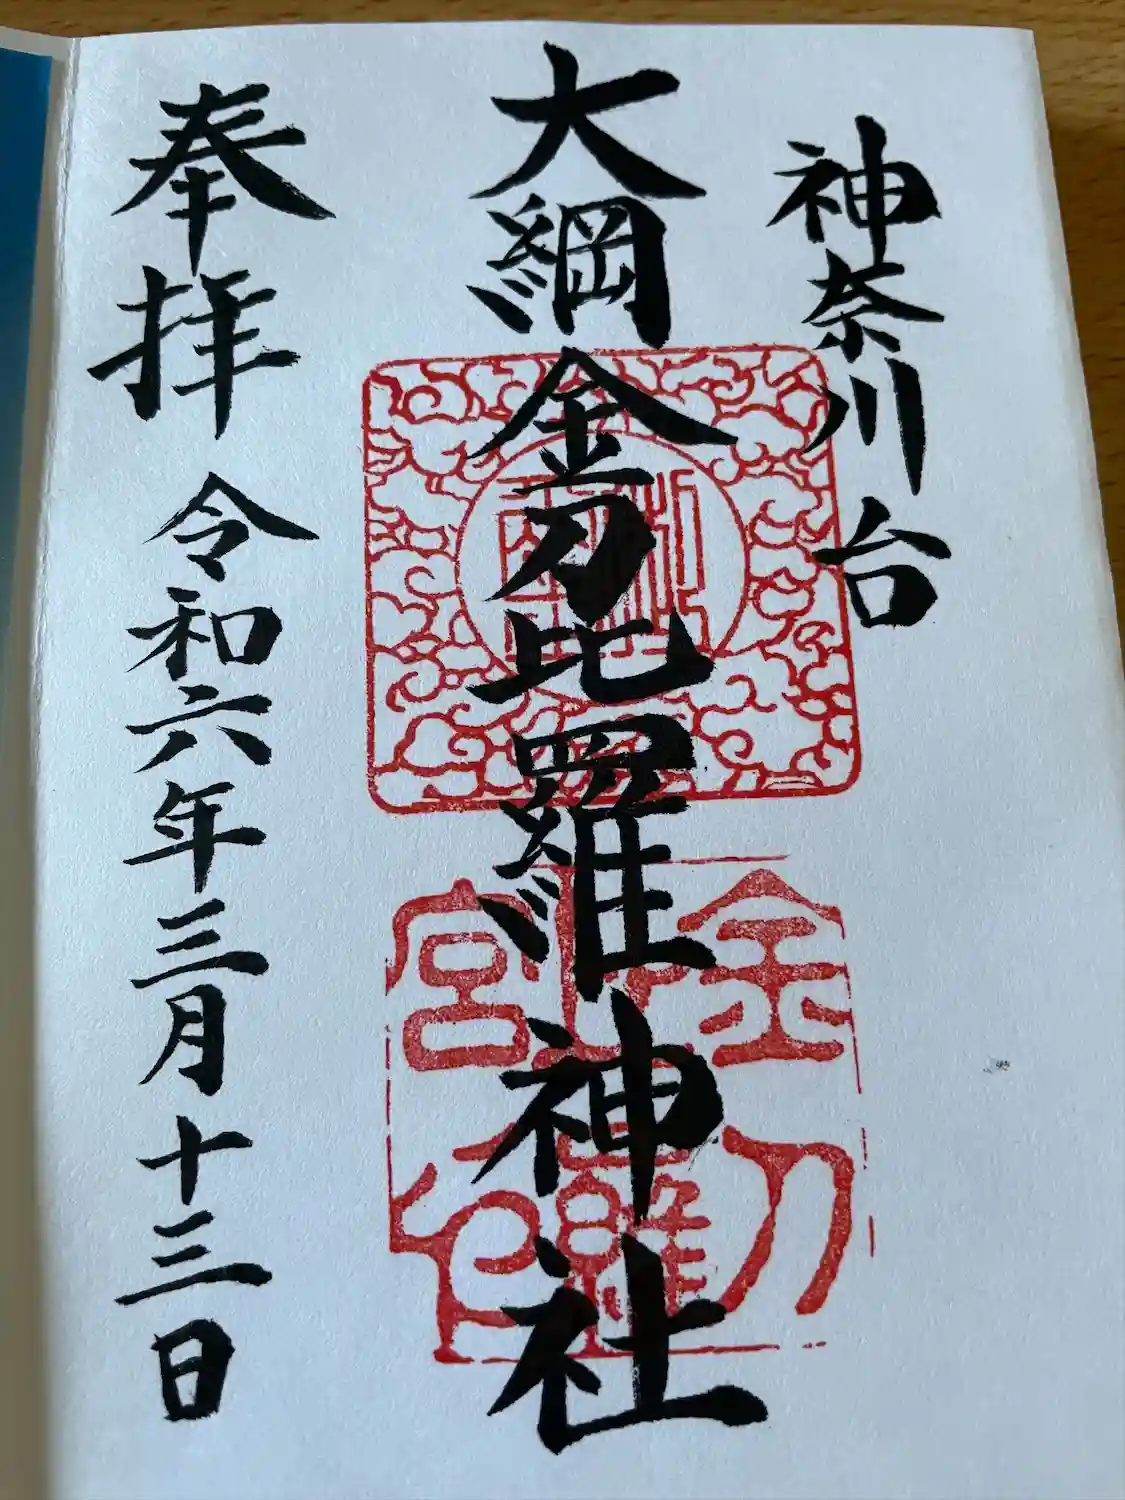 神奈川台
大綱金刀比羅神社
奉拝 令和六年三月十三日